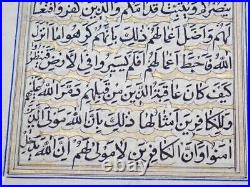 ينصركم ويثبت اقدامكم والذين كفروا فتعسا
لهم واضل اعمالهم ذلك بانهم كرهوا ما انزل
الله فاحبط اعمالهم افلم يسيروا في الارض
كيف كان عاقبة الذين من قبلهم دمر الله عليهم
وللكافرين امثالها ذلك بان الله مولى الذين
امنوا وان الكافرين لا مولى لهم ان الله